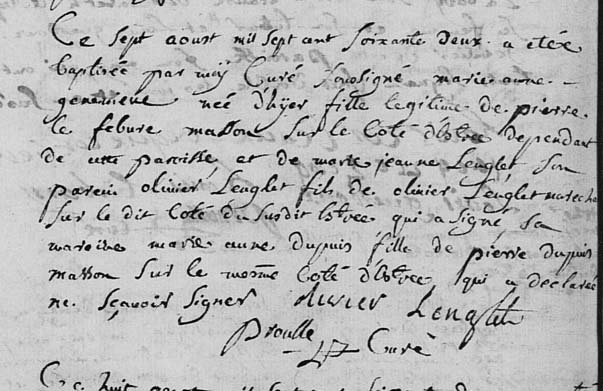 Ce sept aoust mil sept cent soixante deux a eteé
baptisée par moÿ Curé sousigné marie anne -
genevieve née d'hÿer fille legitime de pierre
le febure masson sur le Coté d'Estreé dependant
de cette paroisse et de marie jeanne Lenglet son
parein olivier Lenglet fils de olivier Lenglet marechal
sur le dit Coté du susdit Estreé qui a signé, sa
maroine marie anne dupuis fille de pierre dupuis
masson sur le mesme Coté d'Estreé qui a declareé
ne sçavoir signer olivier Lenglet
Proulle
Curé